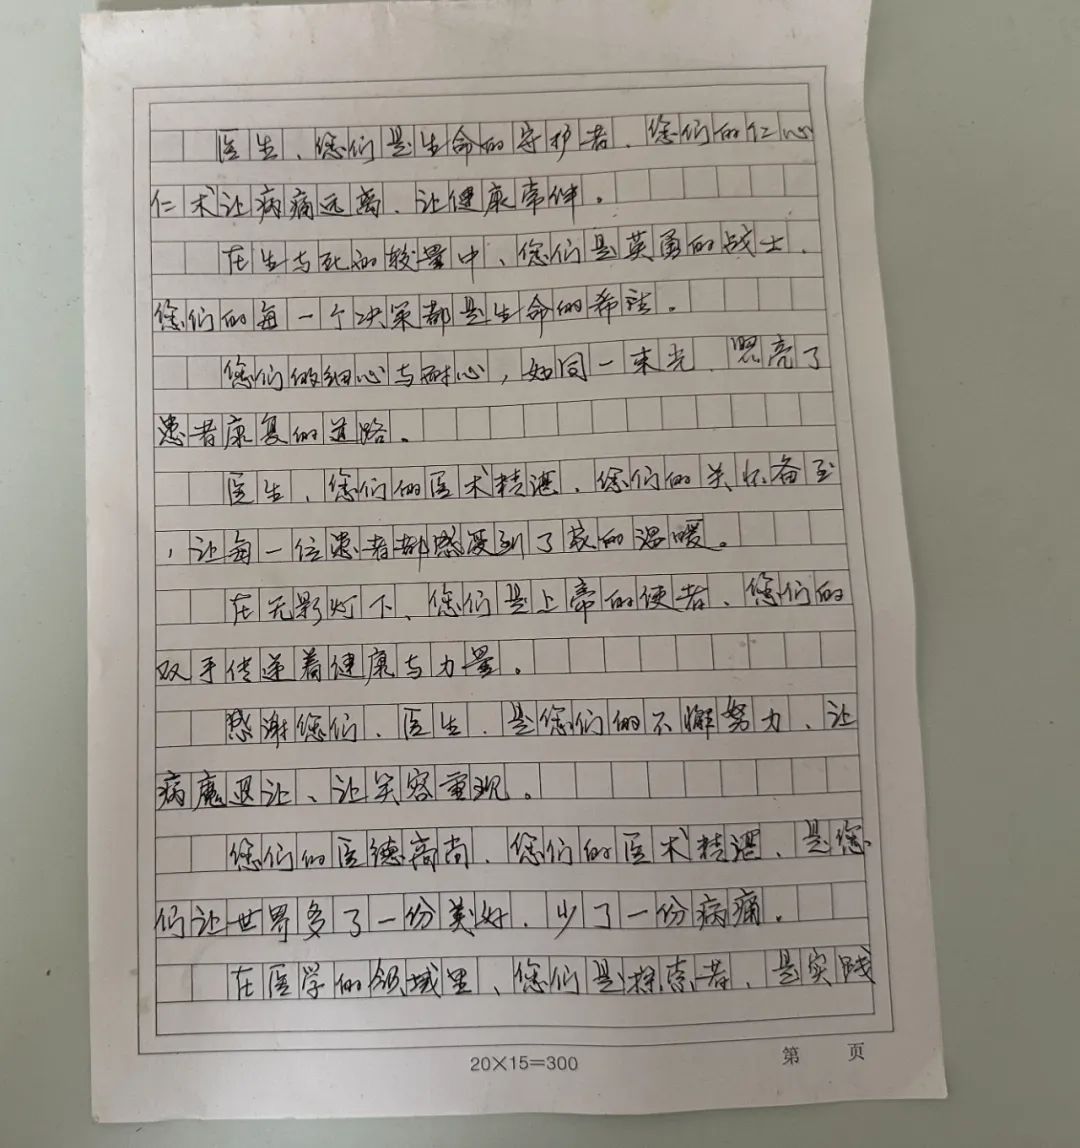 医生、您们是生命的守护者、您们的仁心
仁术让病痛远离、让健康常伴。
在生与死的较量中、您们是英勇的战士、
您们的每一个决策都是生命的希望。
您们的细心与耐心，如同一束光、照亮了
患者康复的道路。
医生、您们的医术精湛、您们的关怀备至
，让每一位患者都感受到了家的温暖。
在无影灯下、您们是上帝的使者、您们的
双手传递着健康与力量。
感谢您们、医生、是您们的不懈努力、让
病魔退让、让笑容重现。
您们的医德高尚、您们的医术精湛、是您
们让世界多了一份美好、少了一份病痛。
在医学的领域里、您们是探索者、是实践
20×15=300
第 页